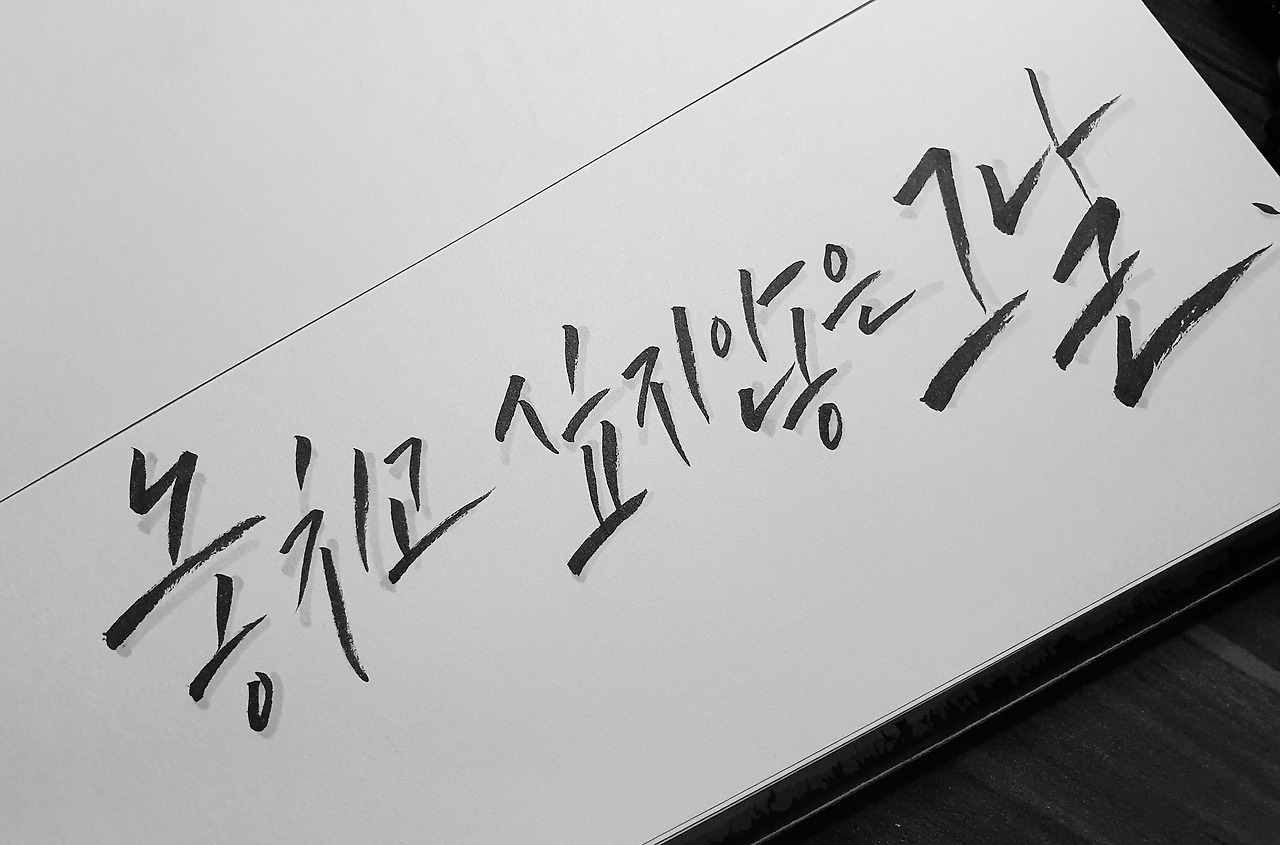 놓치고 싶지않은 그날